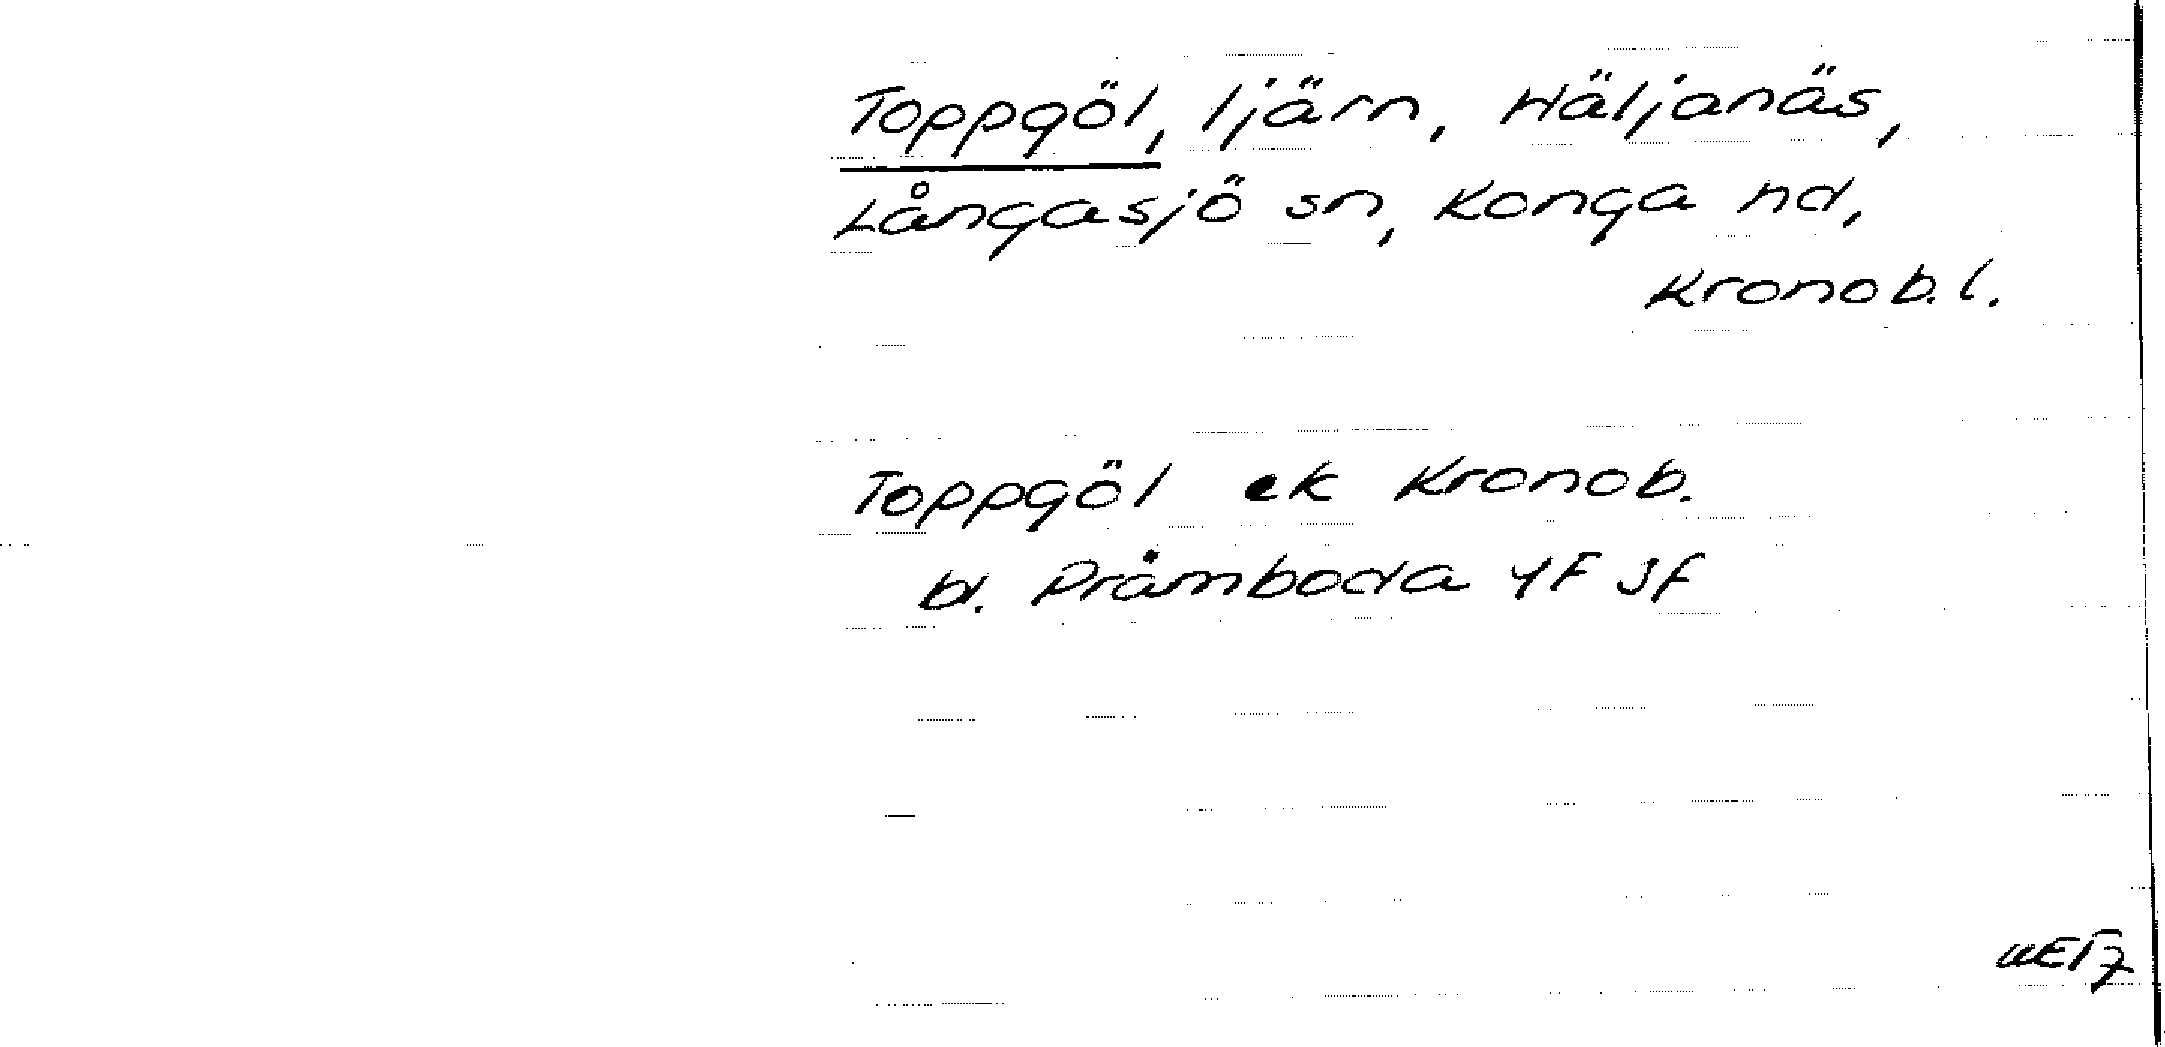 Toppgöl, tjärn, Häljanäs,
Långasjö sn, Konga hd,
Kronob. l.
Toppgöl ek Kronob.
bl. Pråmboda 4F Sf